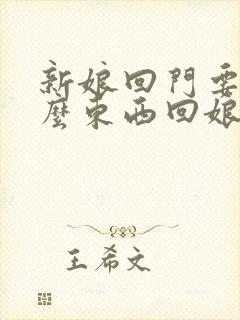 新娘回門要
麼東西回娘
王希文